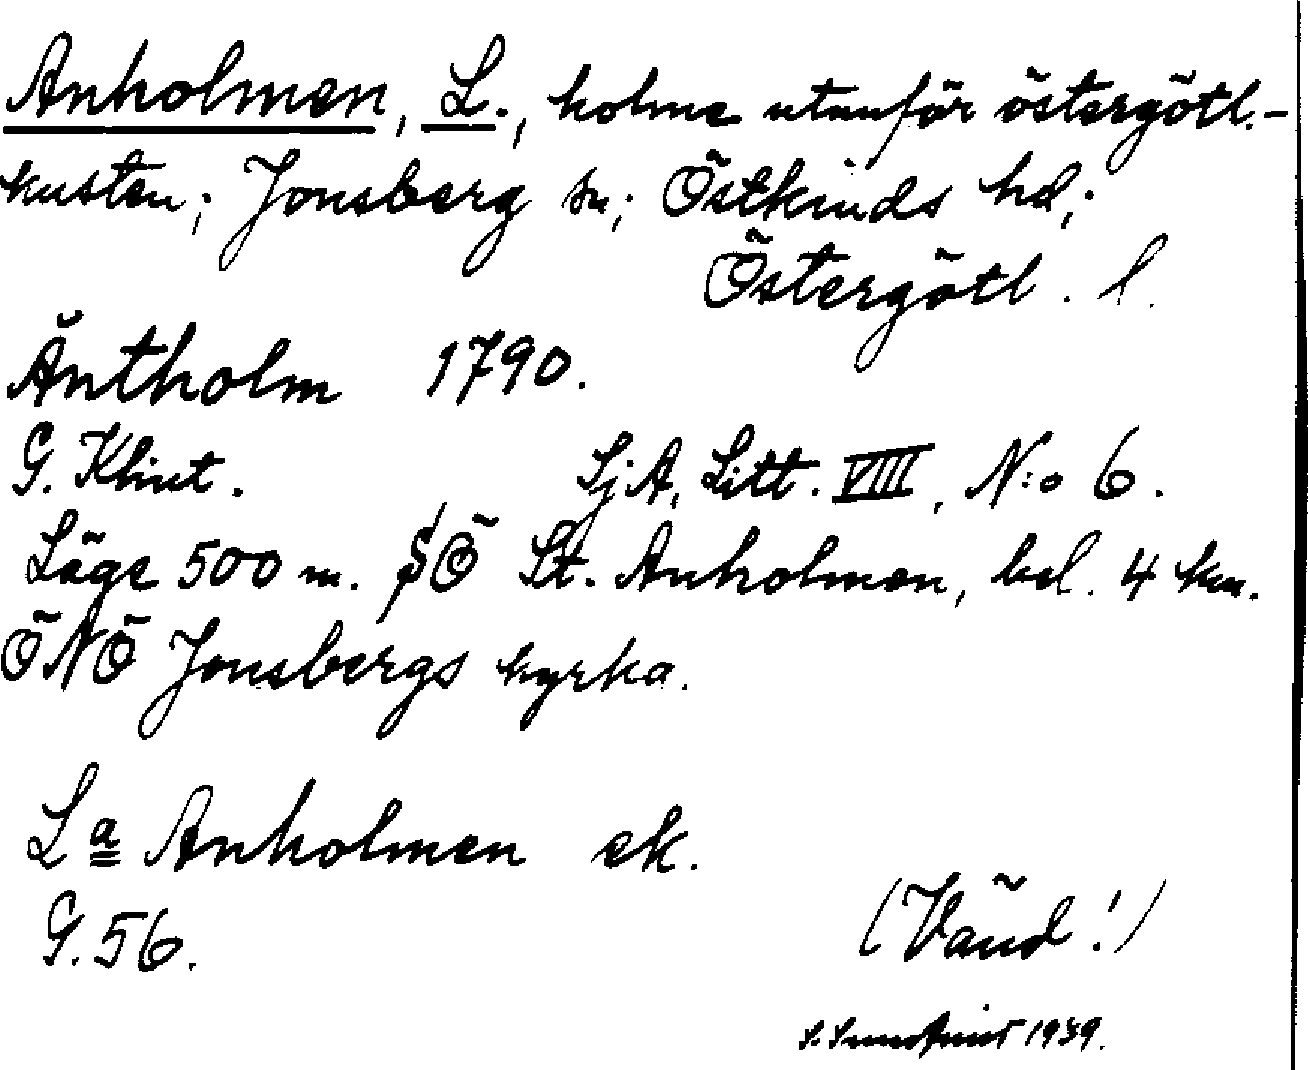 Anholmen, L., holme utanför östergötl.-
kusten; Jonsberg sn; Östkinds hd;
Östergötl. l.
Äntholm 1790.
G. Klint. SjA, Litt. VIII, N:o 6.
Läge 500 m. SÖ St. Anholmen, bel. 4 km.
ÖNÖ Jonsbergs kyrka.
La Anholmen ek.
G. 56.
(Vänd!)
S. Sundqvist 1939.